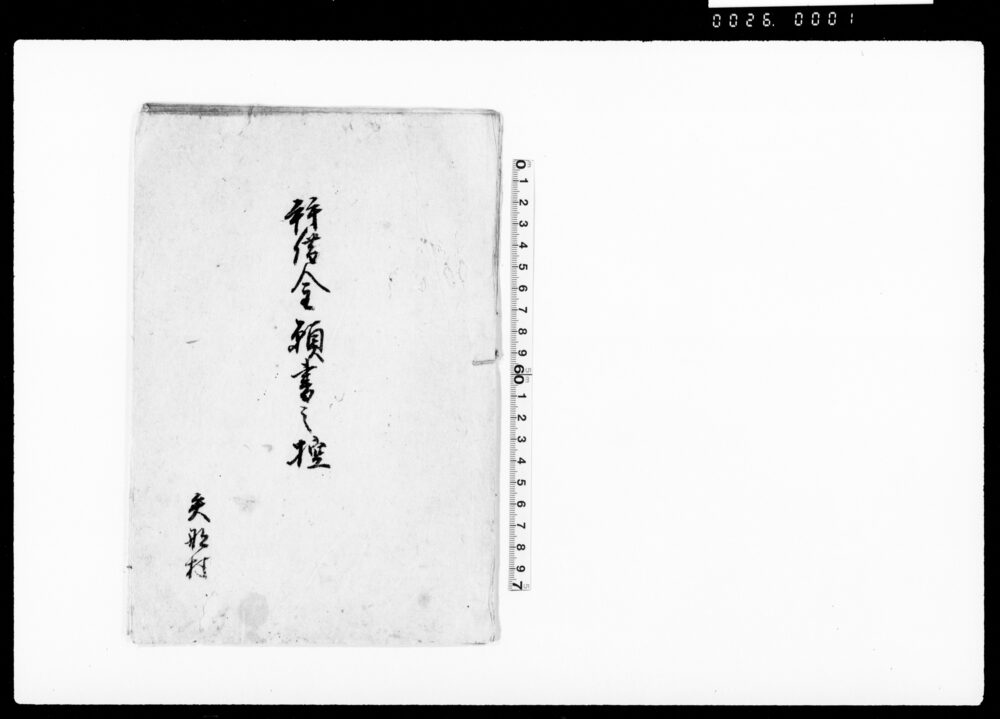 0026. 0001
拝借金願書之控
矢部村
0 1 2 3 4 5 6 7 8 9 60 1 2 3 4 5 6 7 8 9 7